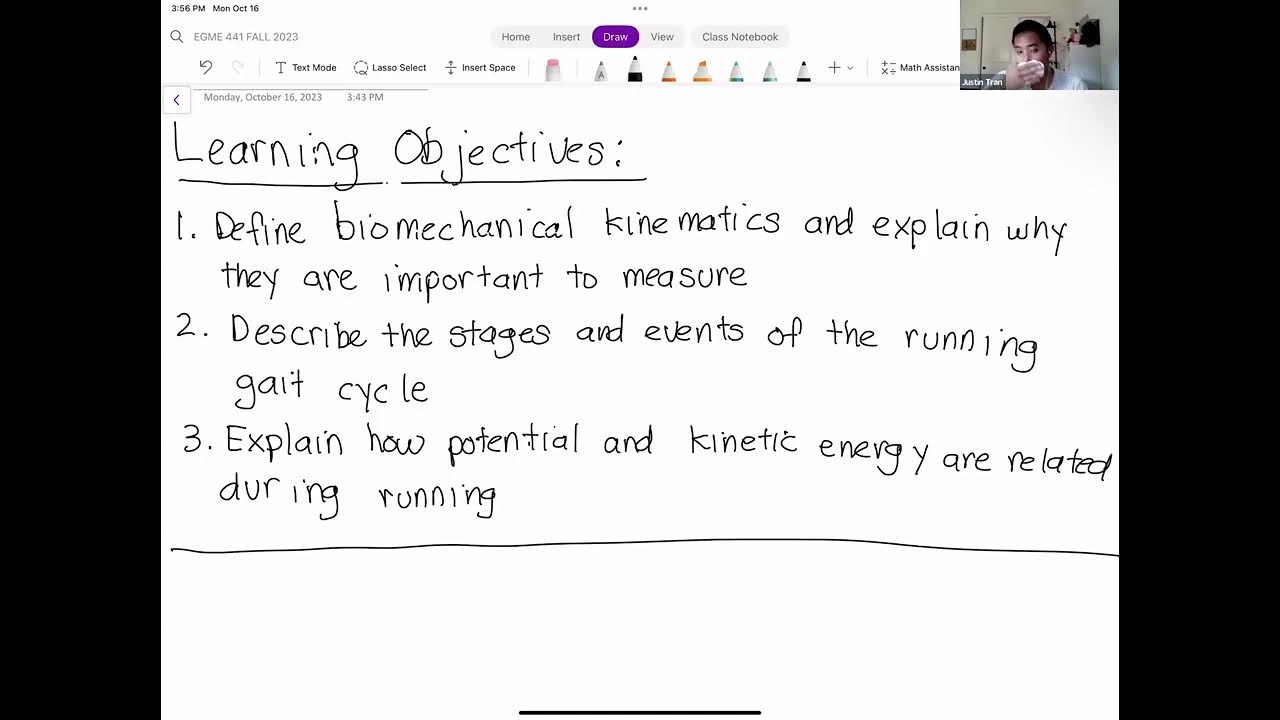 3:56 PM Mon Oct 16
EGME 441 FALL 2023
Home Insert Draw View Class Notebook
Text Mode Lasso Select Insert Space Math Assistan
Justin Tran
Monday, October 16, 2023 3:43 PM
Learning Objectives:
1. Define biomechanical kinematics and explain why
they are important to measure
2. Describe the stages and events of the running
gait cycle
3. Explain how potential and kinetic energy are related
during running